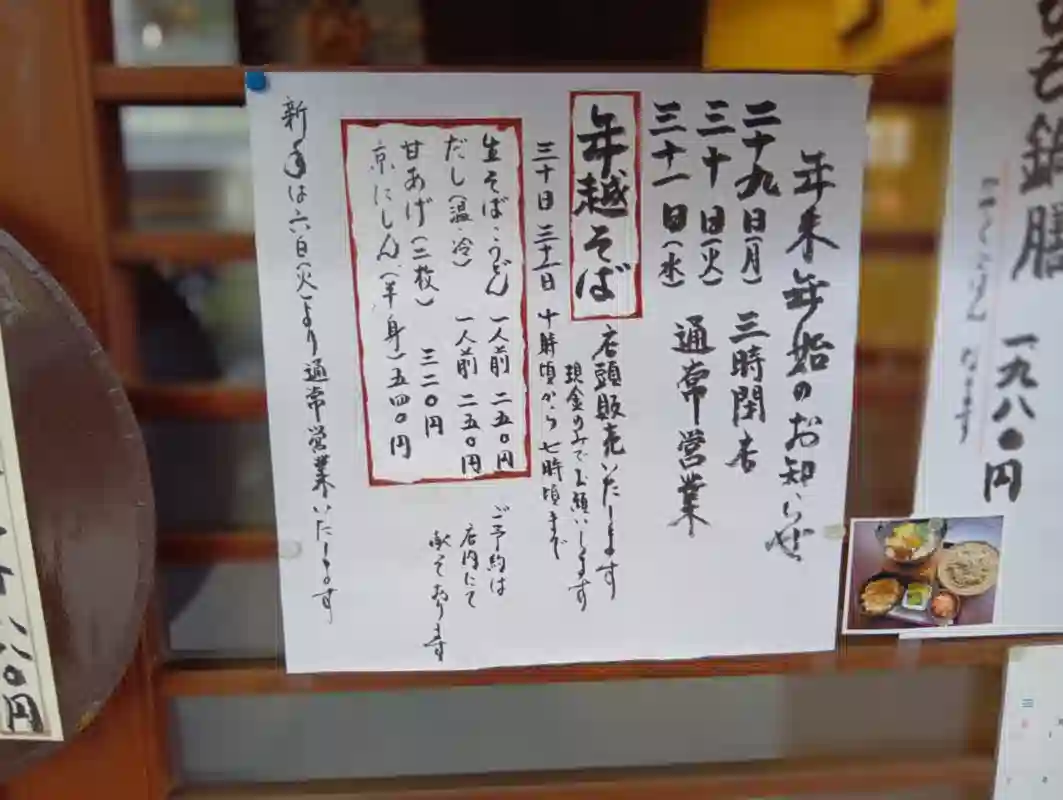 年末年始のお知らせ
二十九日(月) 三時閉店
三十日(火)
三十一日(水) 通常営業
年越そば 店頭販売いたします
現金のみでお願いします
三十日 三十一日 十時頃から 七時頃まで
生そば・うどん 一人前 二五〇円
だし(温・冷) 一人前 二五〇円
甘あげ(二枚) 三二〇円
京にしん(半身) 五四〇円
ご予約は
店内にて
承っております
新年は六日(火)より通常営業いたします
鍋膳 一九八〇円
なります
二〇円